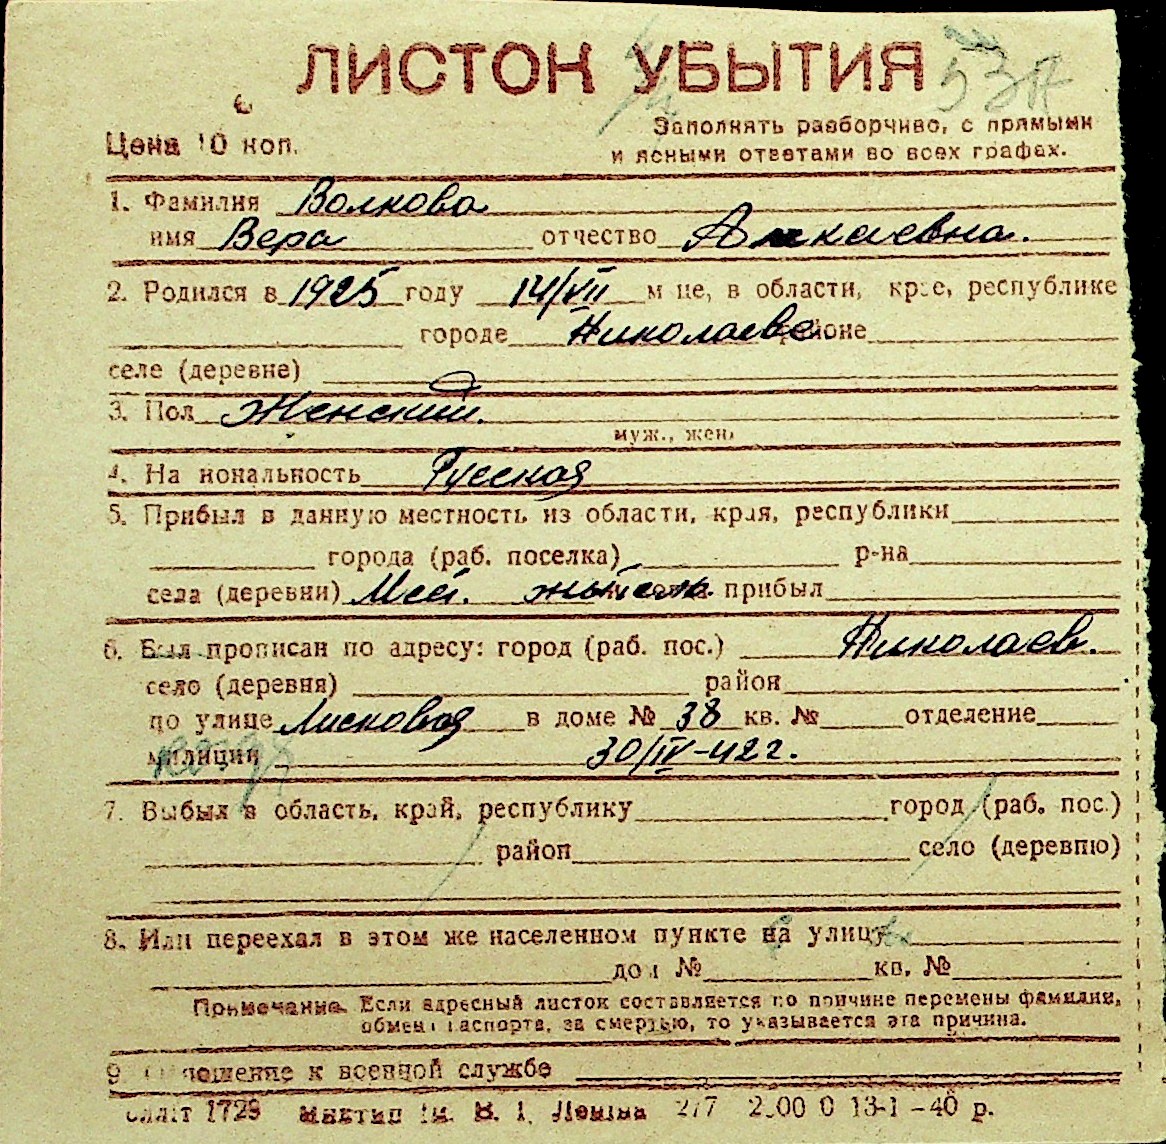 ЛИСТОК УБЫТИЯ
53А
Цена 10 коп.
Заполнять разборчиво, с прямыми
и ясными ответами во всех графах.
1. Фамилия Волкова
имя Вера отчество
2. Родился в 1925 году 14/VII м це, в области, крае, республике
городе Николаеве районе
селе (деревне)
3. Пол Женский.
муж., жен.
4. На иональность Русская
5. Прибыл в данную местность из области, края, республики
города (раб. поселка) р-на
села (деревни) Мест. житель прибыл
6. Был прописан по адресу: город (раб. пос.) Николаев.
село (деревня) район
по улице Лисковая в доме № 38 кв. № отделение
милиции 30/IV-42 г.
7. Выбыл в область, край, республику город (раб. пос.)
район село (деревню)
8. Или переехал в этом же населенном пункте на улицу
дом № кв. №
Примечание. Если адресный листок составляется по причине перемены фамилии,
обмена паспорта, за смертью, то указывается эта причина.
9 Отношение к военной службе
1729 им. В. І. Леніна 277 13-1-40 р.